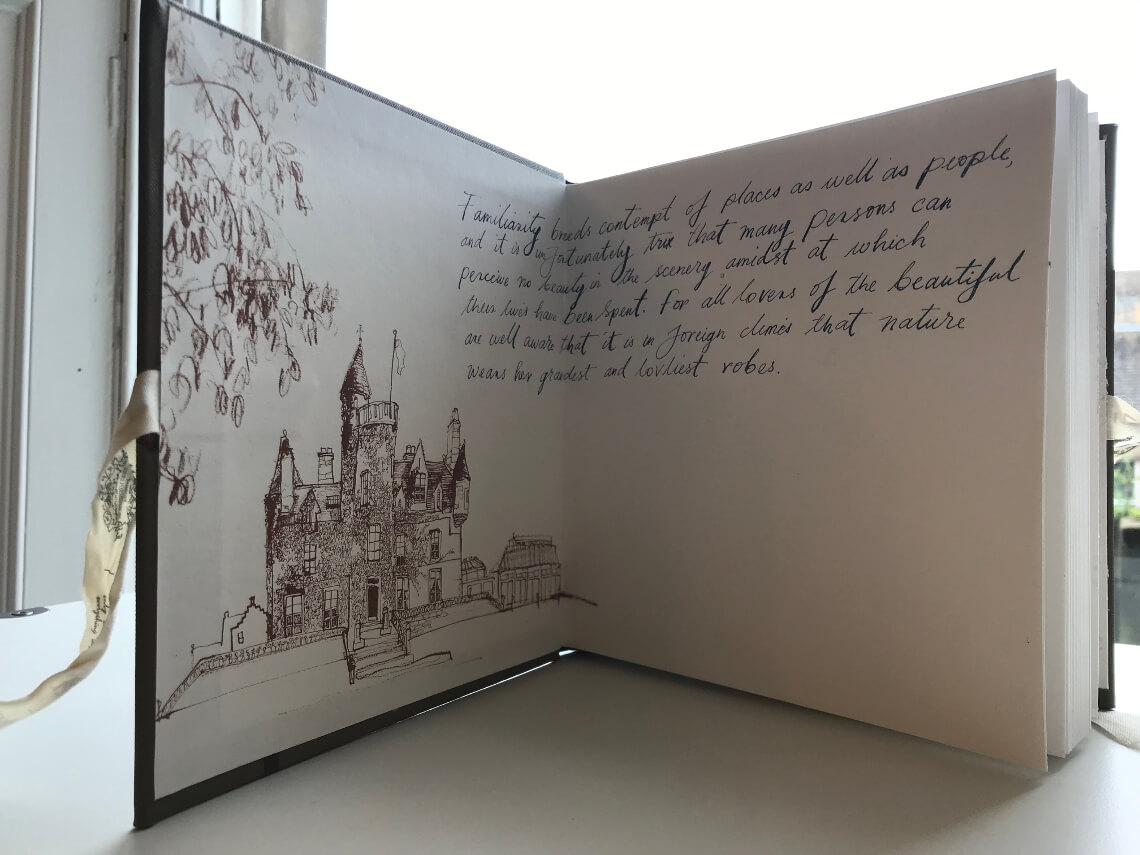 Familiarity breeds contempt of places as well as people,
and it is unfortunately true that many persons can
perceive no beauty in the scenery amidst at which
their lives have been spent. For all lovers of the beautiful
are well aware that it is in foreign climes that nature
wears her grandest and lovliest robes.